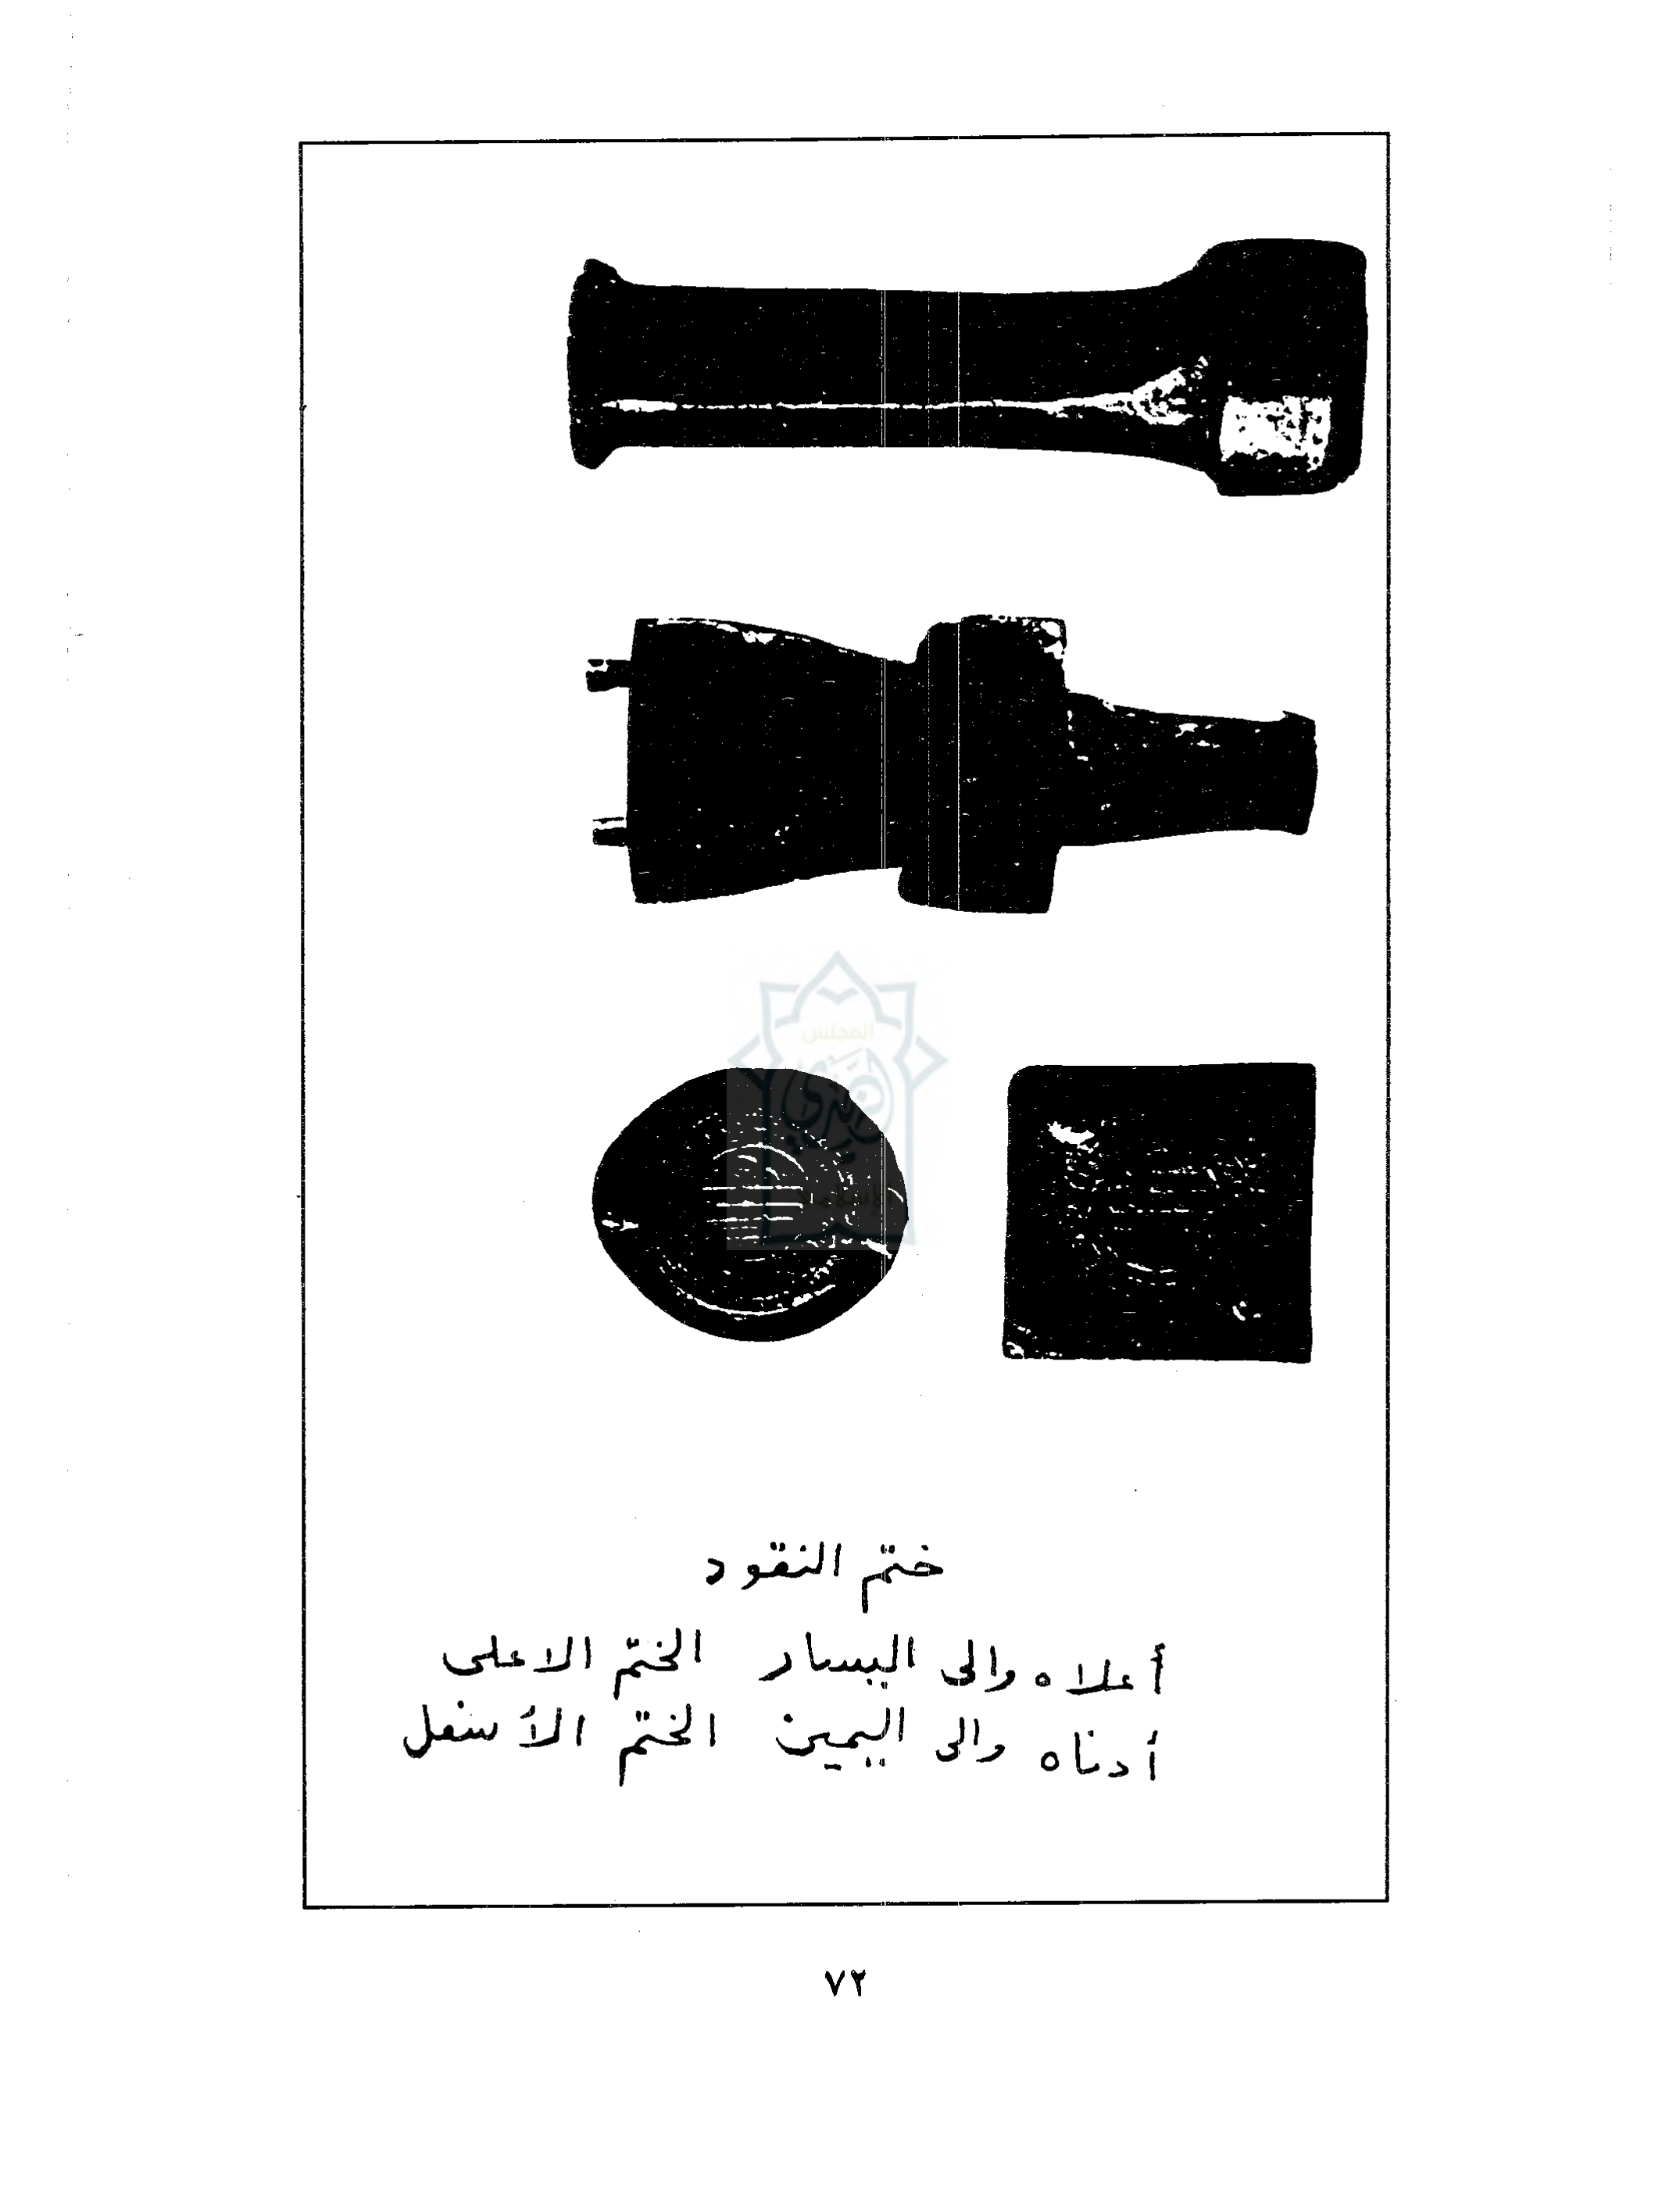 المجلس
ختم النقود
أعلاه والى اليسار الختم الاعلى
أدناه والى اليمين الختم الأسفل
٧٢